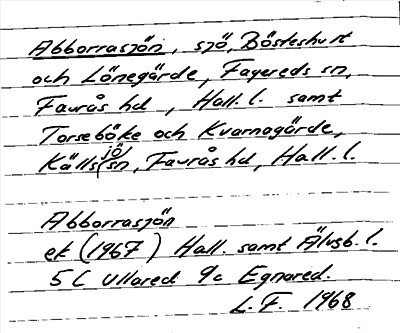 Abborrasjön, sjö, Bösteshult
och Lönegärde, Fagereds sn,
Faurås hd, Hall. l. samt
Torseböke och Kvarnagärde,
Källs(jö) sn, Faurås hd, Hall. l.
Abborrasjön
ek (1967) Hall. samt Älvsb. l.
5 C Ullared 9c Egnared.
L. F. 1968